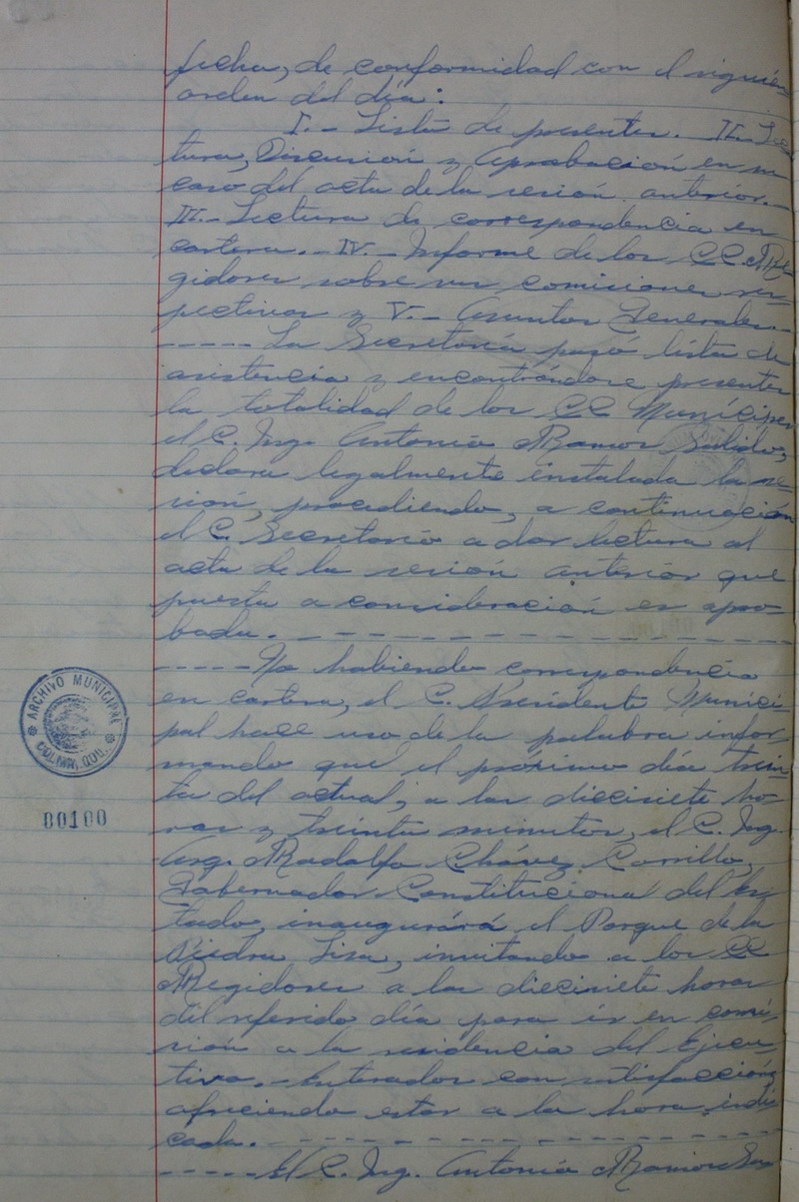 fecha, de conformidad con el siguien
orden del día:
I.- Lista de presentes. II.- Lec
tura, Discusión y Aprobación en su
caso del acta de la sesión anterior.-
III.- Lectura de correspondencia en
cartera.- IV.- Informe de los CC. Re
gidores sobre sus comisiones res-
pectivas y V.- Asuntos Generales.-
----- La Secretaría pasó lista de
asistencia y encontrándose presentes
la totalidad de los CC Munícipes
el C. Ing. Antonio Ramos Salido,
declara legalmente instalada la se-
sión, procediendo, a continuación
el C. Secretario a dar lectura al
acta de la sesión anterior que
puesta a consideración es apro-
bada. - - - - - - - - - - - -
----- No habiendo correspondencia
en cartera, el C. Presidente Munici-
pal hace uso de la palabra infor-
mando que el próximo día trein-
ta del actual, a las diecisiete ho-
ras y treinta minutos, el C. Ing.
Arq. Rodolfo Chávez Carrillo,
Gobernador Constitucional del Es-
tado, inaugurará el Parque de la
Piedra Lisa, invitando a los CC
Regidores a las diecisiete horas
del referido día para ir en comi-
sión a la residencia del Ejecu-
tivo.- Enterados con satisfacción,
ofreciendo estar a la hora indi-
cada. - - - - - - - - - - - -
----- El C. Ing. Antonio Ramos Sa
ARCHIVO MUNICIPAL
COLIMA, COL.
00100